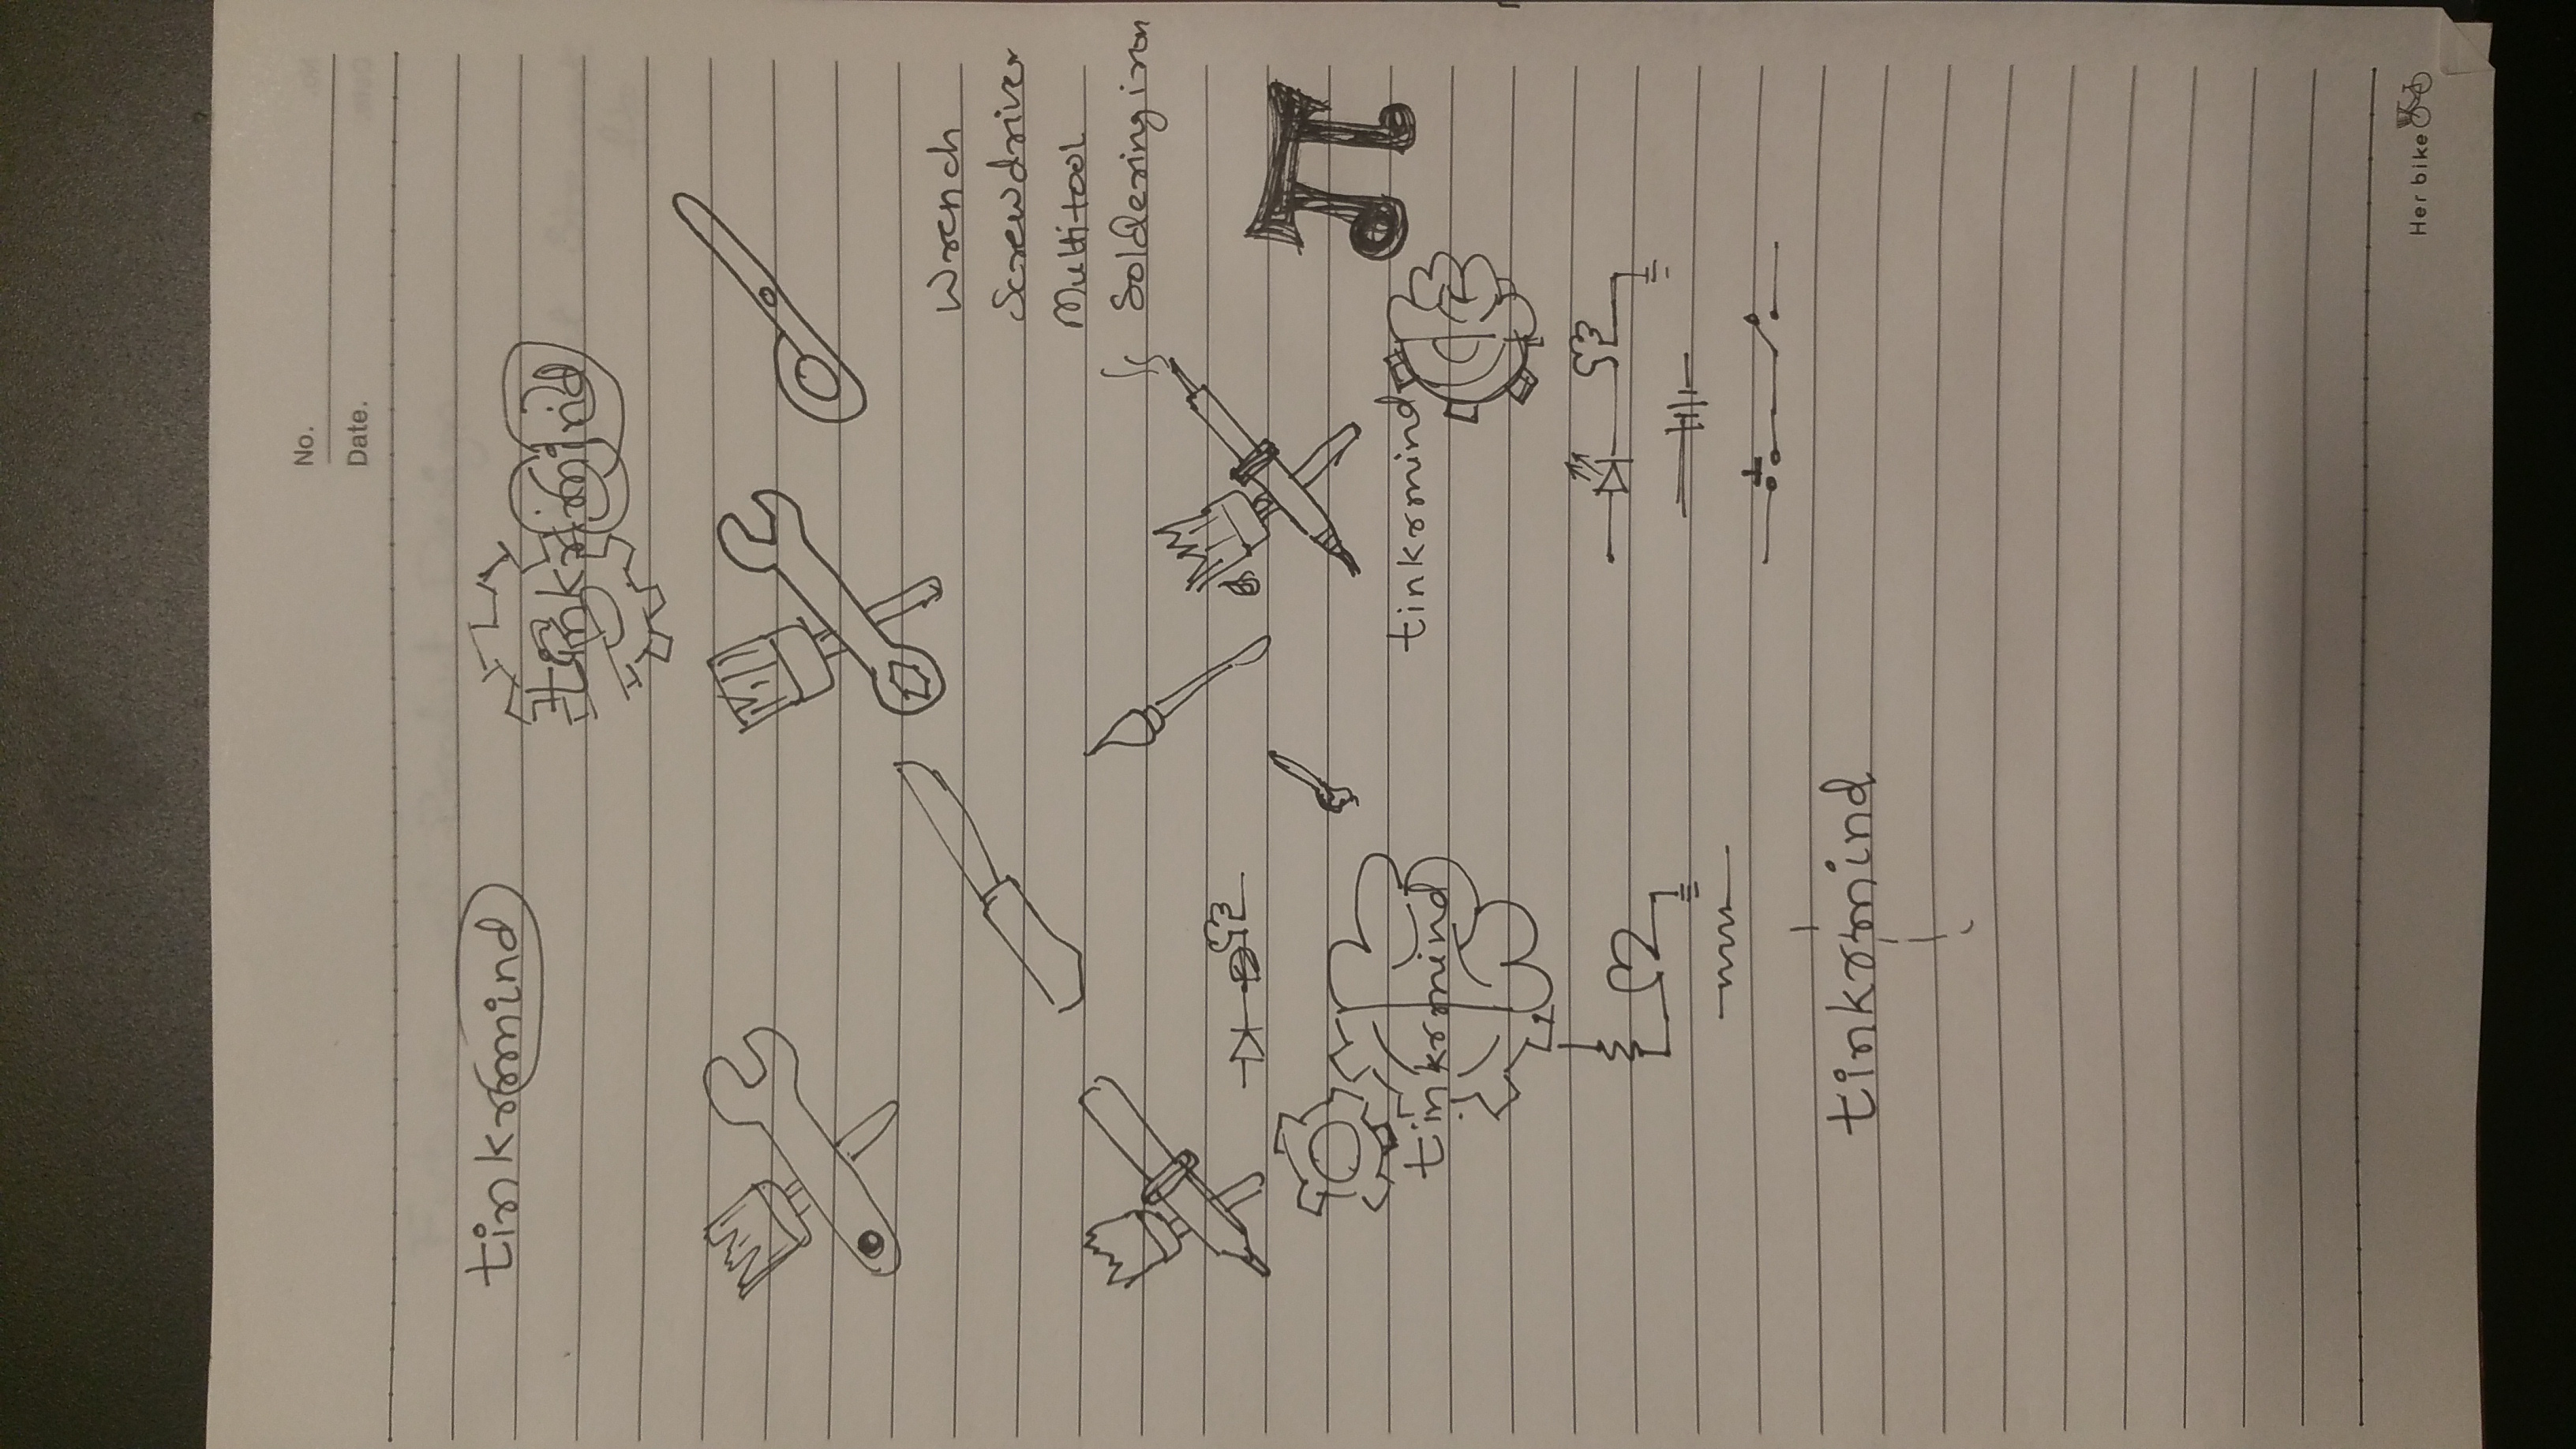 No.
Date.
tinkrmind
tinkrmind
Wrench
Screwdriver
Multitool
Soldering iron
tinkrmind
tinkrmind
tinkrmind
Her bike